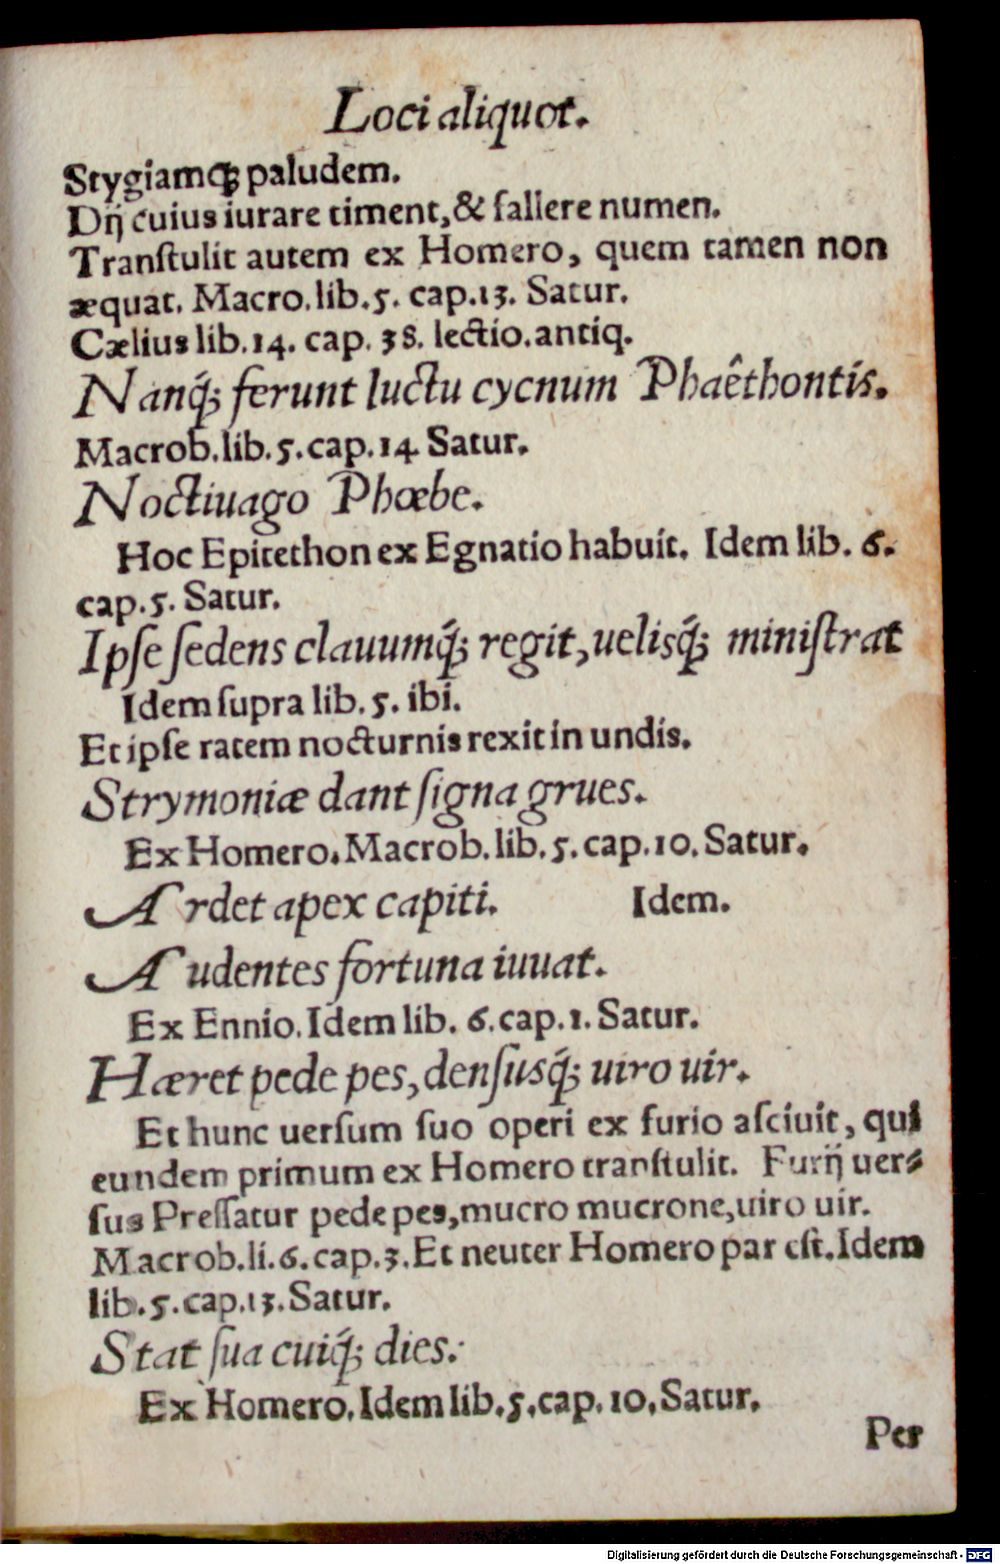 Loci aliquot.
Stygiamq́; paludem.
Dij cuius iurare timent, & fallere numen.
Tranſtulit autem ex Homero, quem tamen non
æquat. Macro. lib. 5. cap. 13. Satur.
Cælius lib. 14. cap. 38. lectio. antiq.
Nanq́; ferunt luctu cycnum Phaêthontis.
Macrob. lib. 5. cap. 14 Satur.
Noctiuago Phœbe.
Hoc Epitethon ex Egnatio habuit. Idem lib. 6.
cap. 5. Satur.
Ipſe ſedens clauumq́; regit, uelisq́; miniſtrat
Idem ſupra lib. 5. ibi.
Et ipſe ratem nocturnis rexit in undis.
Strymoniæ dant ſigna grues.
Ex Homero. Macrob. lib. 5. cap. 10. Satur.
Ardet apex capiti. Idem.
Audentes fortuna iuuat.
Ex Ennio. Idem lib. 6. cap. 1. Satur.
Hæret pede pes, denſusq́; uiro uir.
Et hunc uerſum ſuo operi ex furio aſciuit, qui
eundem primum ex Homero tranſtulit. Furij uer⸗
ſus Preſſatur pede pes, mucro mucrone, uiro uir.
Macrob. li. 6. cap. 3. Et neuter Homero par eſt. Idem
lib. 5. cap. 13. Satur.
Stat ſua cuiq́; dies.
Ex Homero. Idem lib. 5. cap. 10. Satur.
Per
Digitalisierung gefördert durch die Deutsche Forschungsgemeinschaft - DFG